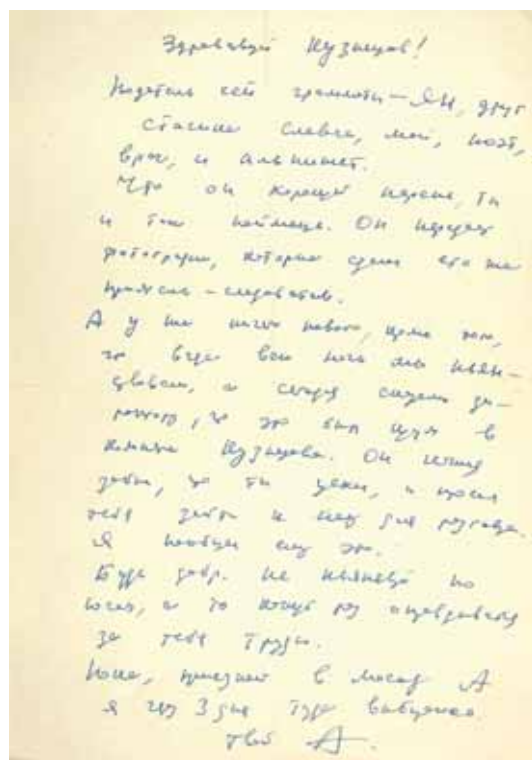 Здравствуй Кузнецов!
Податель сей грамоты — Ян, друг
Стасика Славича, мой, поэт,
врач, и альпинист.
Что он хороший парень, ты
и так поймешь. Он передаст
фотографии, которые сделал его же
приятель - следователь.
А у нас ничего нового, кроме того,
что вчера всю ночь мы пьян-
ствовали, а сегодня сказали ди-
ректору, что это был шум в
комнате Кузнецова. Он
забыл, что ты уехал, и просил
тебя зайти к нему для разговора.
Я пообещал ему это.
Будь добр. Не пьянствуй по
ночам, а то каждый раз оправдываться
за тебя трудно.
Юша, приезжай в Москву. А
я через 3 дня туда
твой А.